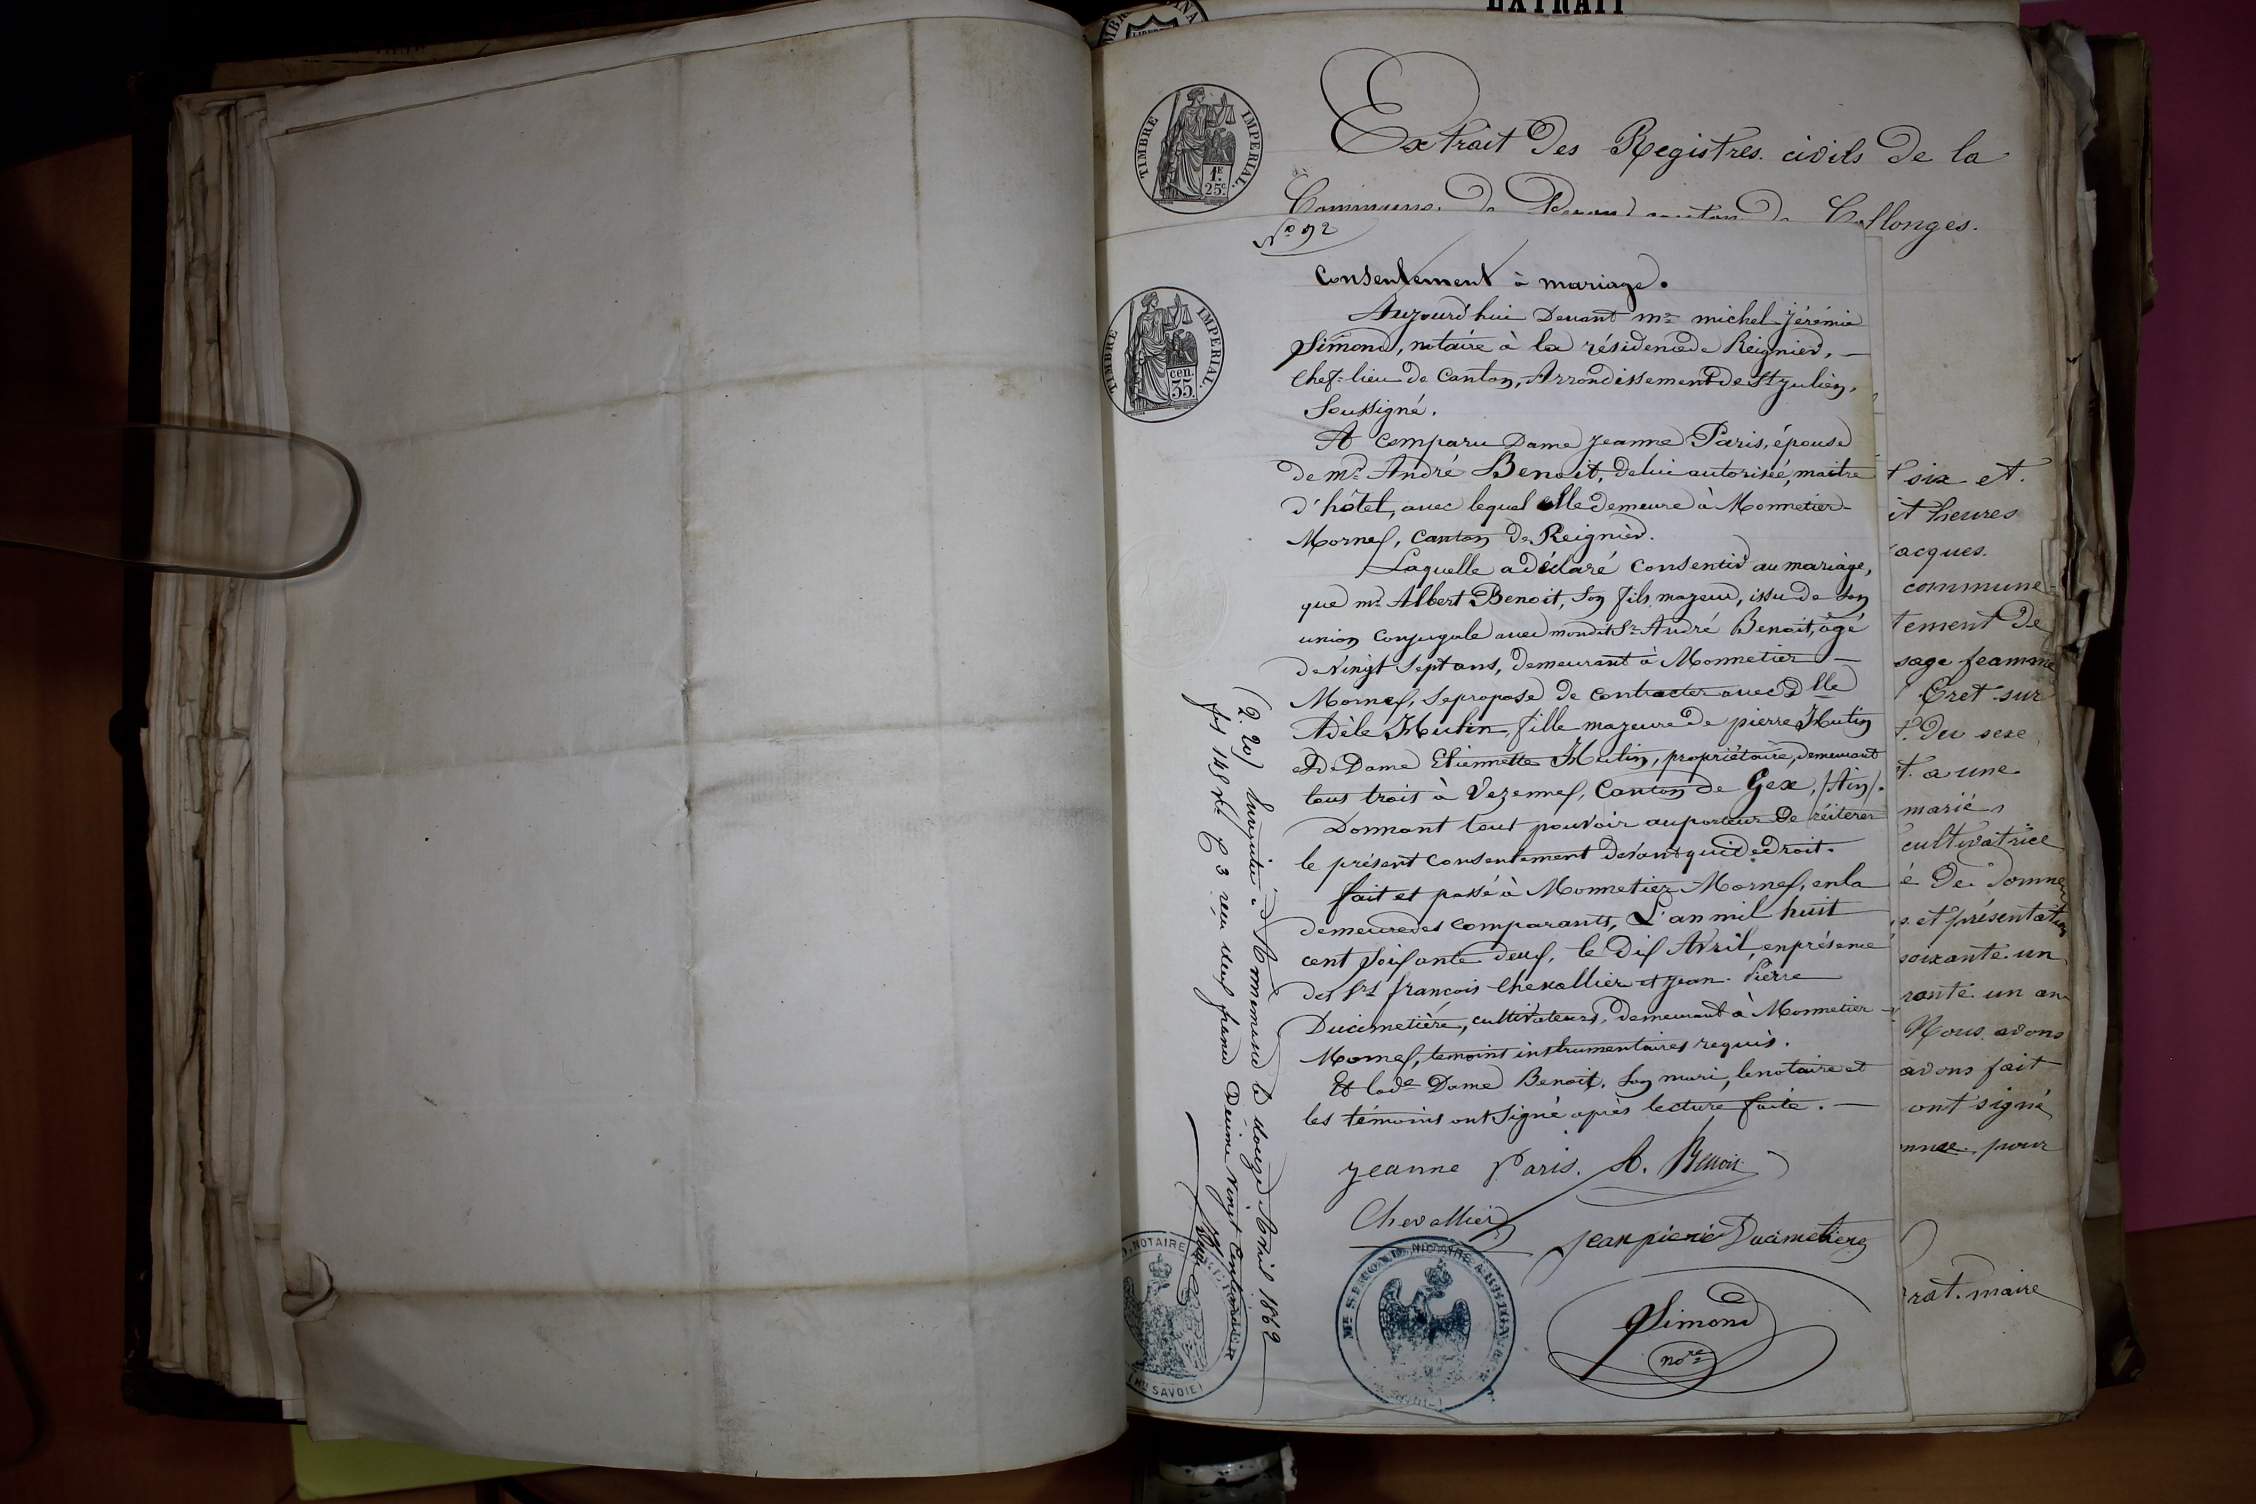 EXTRAIT
TIMBRE IMPERIAL.
1F. 25c.
Extrait des Registres civils de la
Commune de canton de Collonges.
No 92
TIMBRE IMPERIAL.
cen. 35.
Consentement à mariage.
Aujourd'hui Devant me michel Jérémie
Simond, notaire à la résidence de Reignier, —
chef-lieu de Canton, Arrondissement de St Julien,
Soussigné.
A comparu Dame Jeanne Paris, épouse
de mr André Benoit, de lui autorisée, maitre
d'hôtel, avec lequel elle demeure à Monnetier-
Mornex, canton de Reignier.
Laquelle a déclaré consentir au mariage,
que mr Albert Benoit, son fils majeur, issu de son
union conjugale avec mondit Sr André Benoit, âgé
de vingt Sept ans, demeurant à Monnetier —
Mornex, se propose de contracter avec Dlle
Adèle Hutin, fille majeure de pierre Hutin
et de Dame Etiennette Hutin, propriétaire, demeurant
tous trois à Vezennex, Canton de Gex, (Ain).
Donnant tout pouvoir au porteur de réitérer
le présent consentement devant qui de droit.
fait et passé à Monnetier Mornex, en la
demeure des comparants, L'an mil huit
cent soixante deux, le dix Avril, en présence
des Srs françois Chevallier et Jean-Pierre
Ducimetière, cultivateurs, demeurant à Monnetier-
Mornex, temoins instrumentaires requis.
Et lade Dame Benoit, son mari, le notaire et
les témoins ont signé après lecture faite. —
Jeanne Paris. A. Benoit
Chevallier
Jean pierre Ducimetiere
Simond
nore
Enregistré à Annemasse le douze Avril 1862
fo 148 Ro C 3 reçu deux francs Décime vingt centimes
NOTAIRE
(Hte SAVOIE)
Me SIMOND, NOTAIRE A REIGNIER
t six et.
it heures
acques.
commune
tement de
sage femme
Cret sur
t. du sexe
t. a une
mariés
cultivatrice
é de donner
s. et présentation
soixante un
rante un an
Nous avons
avons fait
ont signé
pour
rat. maire